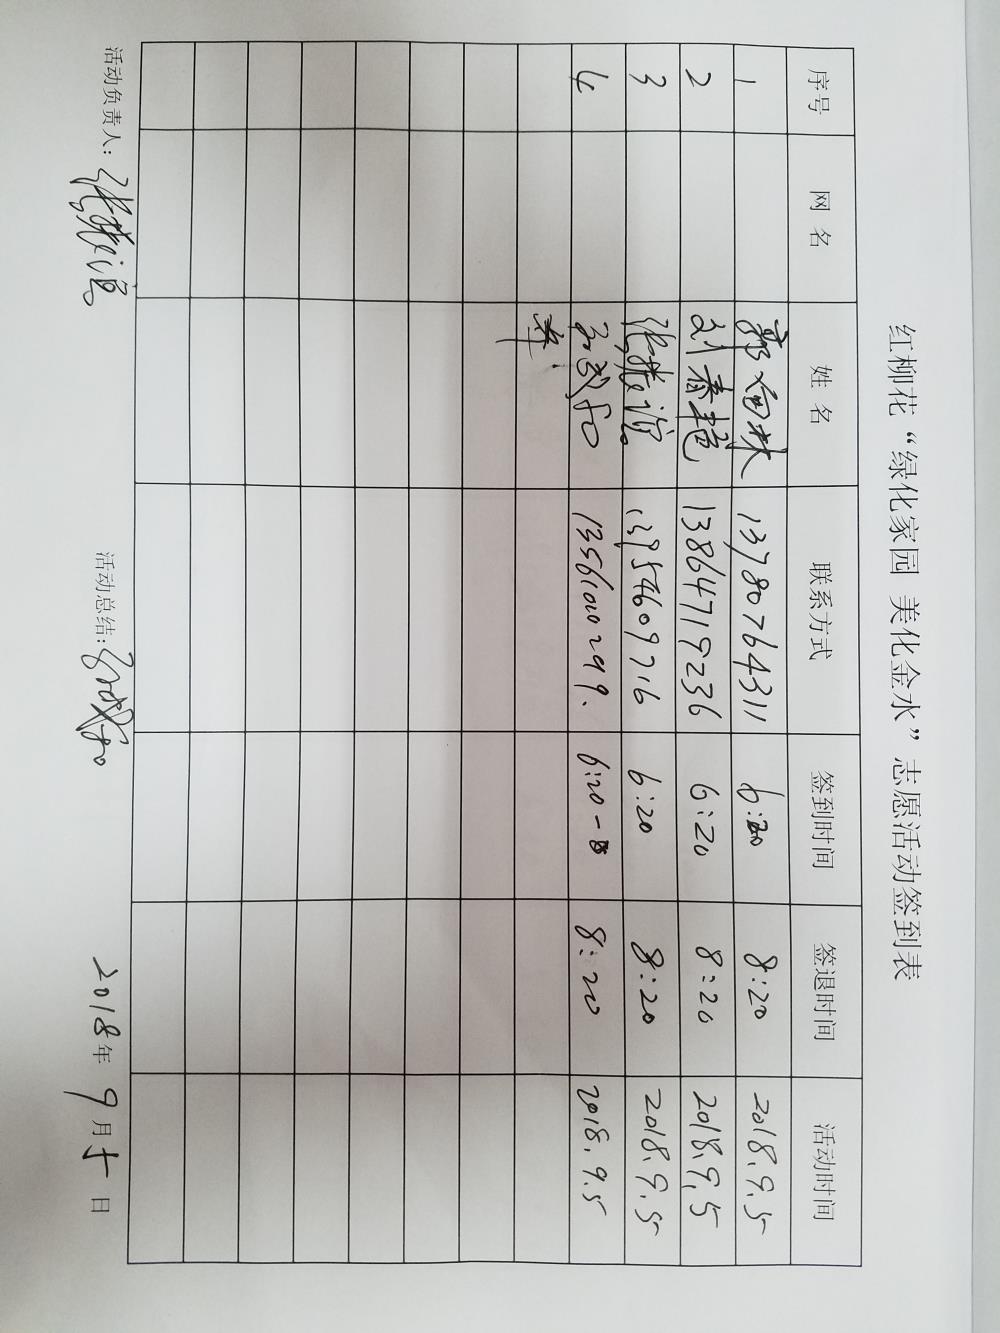 红柳花“绿化家园 美化金水”志愿活动签到表
序号 网名 姓名 联系方式 签到时间 签退时间 活动时间
1 13780764311 6:20 8:20 2018.9.5
2 刘春艳 13864719236 6:20 8:20 2018.9.5
3 13954609716 6:20 8:20 2018.9.5
4 13561000299. 6:20-8 8:20 2018.9.5
活动负责人: 活动总结: 2018年9月5日